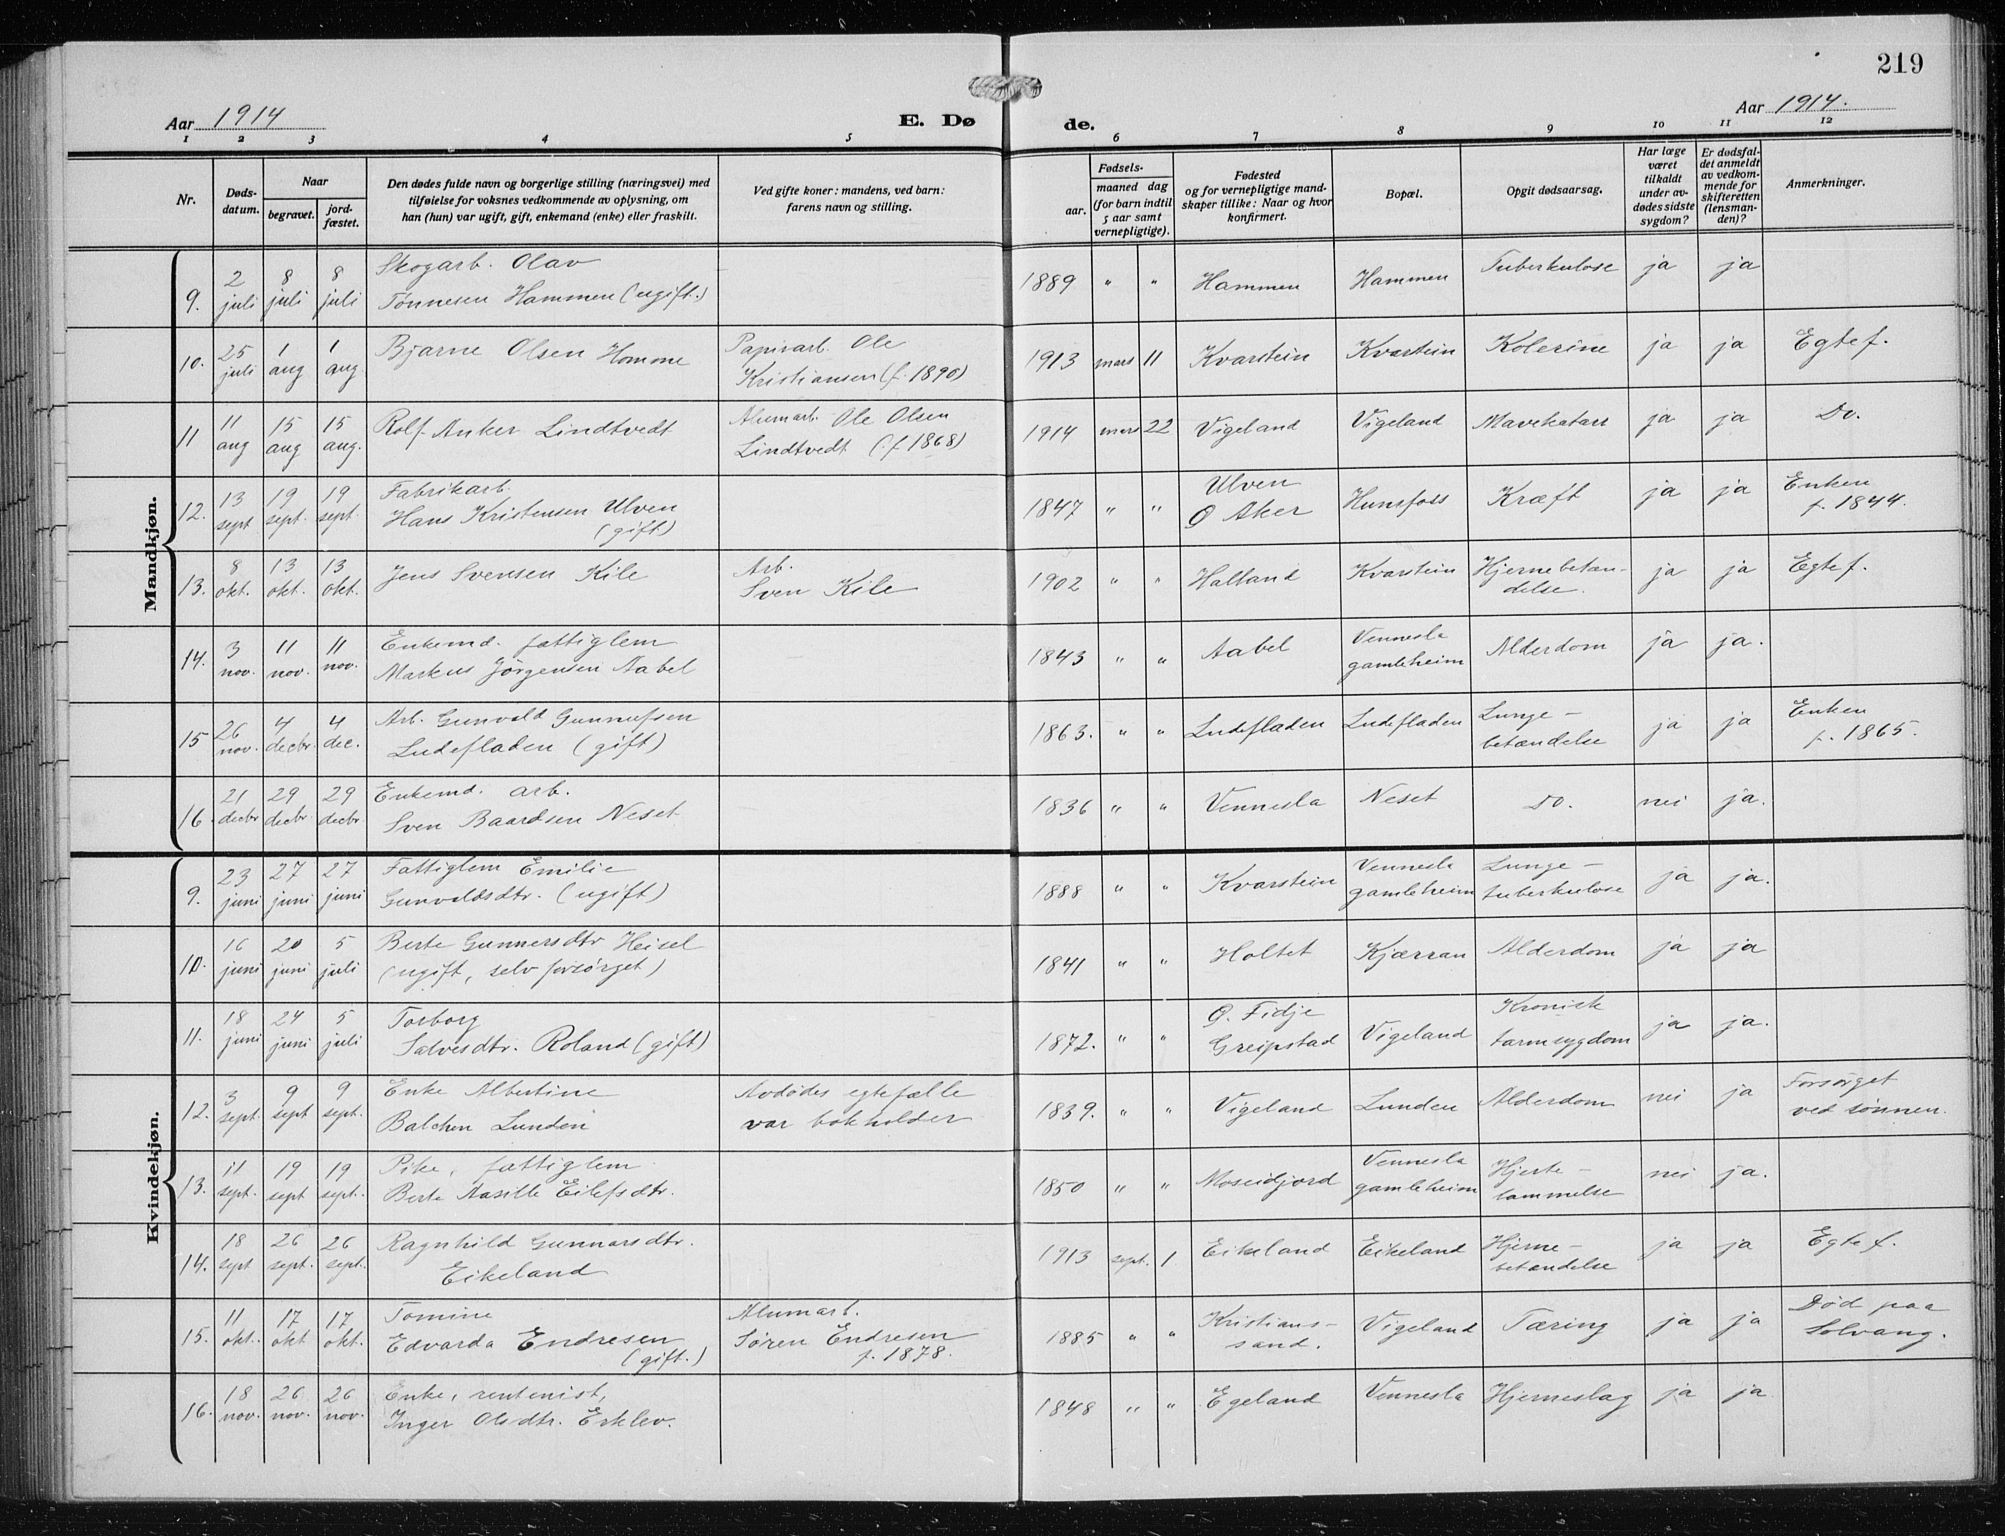 219
Aar 1914 E. Dø de. Aar 1914.
1 2 3 4 5 6 7 8 9 10 11 12
Nr. Døds-datum. Naar begravet. jord-fæstet. Den dødes fulde navn og borgerlige stilling (næringsvei) med tilføielse for voksnes vedkommende av oplysning, om han (hun) var ugift, gift, enkemand (enke) eller fraskilt. Ved gifte koner: mandens, ved barn: farens navn og stilling. Fødsels- aar. maaned dag (for barn indtil 5 aar samt vernepligtige). Fødested og for vernepligtige mand-skaper tillike: Naar og hvor konfirmert. Bopæl. Opgit dødsaarsag. Har læge været tilkaldt under av-dødes sidste sygdom? Er dødsfal-det anmeldt av vedkom-mende for skifteretten (lensman-den)? Anmerkninger.
Mandkjøn.
9. 2 juli 8 juli 8 juli Skogarb. Olav Tønnesen Hammen (ugift.) 1889 " " Hammen Hammen Tuberkulose ja ja
10. 25 juli 1 aug 1 aug. Bjarne Olsen Homme Papirarb. Ole Kristiansen (f. 1890) 1913 mars 11 Kvarstein Kvarstein Kolerine ja ja Egtef.
11 11 aug 15 aug 15 aug. Rolf Anker Lindtvedt Alumarb. Ole Olsen Lindtvedt (f 1868) 1914 mars 22 Vigeland Vigeland Mavekatarr ja ja Do.
12. 13 sept 19 sept. 19 sept. Fabrikarb. Hans Kristensen Ulven (gift) 1847 " " Ulven Ø Aker Hunsfoss Kræft ja ja Enken f. 1844.
13. 8 okt. 13 okt. 13 okt. Jens Svensen Kile Arb. Sven Kile 1902 " " Hatland Kvarstein Hjernebetæn-delse. ja ja Egtef.
14. 3 nov. 11 nov. 11 nov. Enkemd. fattiglem Markus Jørgensen Aabel 1843 " " Aabel Vennesla gamleheim Alderdom ja ja.
15 26 nov. 4 decbr. 4 dec. Arb. Gunvald Gunnufsen Ludefladen (gift) 1863. " " Ludefladen Ludefladen Lunge-betændelse ja ja Enken f. 1865.
16. 21 decbr 29 decbr. 29 decbr Enkemd. arb. Sven Baardsen Neset 1836 " " Vennesla Neset Do. nei ja.
Kvindekjøn.
9. 23 juni 27 juni 27 juni Fattiglem Emilie Gunvaldsdtr. (ugift) 1888 " " Kvarstein Vennesla gamleheim Lunge-tuberkulose ja ja.
10. 16 juni 20 juni 5 juli Berte Gunnersdtr Heisel (ugift, selvforsørget) 1841 " " Holtet Kjærran Alderdom ja ja
11. 18 juni 24 juni 5 juli Torborg Salvesdtr. Roland (gift) 1872. " " Ø. Fidje Greipstad Vigeland Kronisk tarmsygdom ja ja.
12. 3 sept 9 sept 9 sept. Enke Albertine Balchen Lunden Avdødes egtefælle var bokholder 1839. " " Vigeland Lunden Alderdom nei ja Forsørget ved sønnen.
13. 11 sept. 19 sept 19 sept. Pike, fattiglem Berte Aasille Eilefsdtr. 1850 " " Moseidjord Vennesla gamleheim Hjerte-lammelse nei ja.
14. 18 sept 26 sept. 26 sept. Ragnhild Gunnarsdtr. Eikeland 1913 sept. 1 Eikeland Eikeland Hjerne-betændelse ja ja Egtef.
15. 11 okt. 17 okt 17 okt. Tomine Edvarda Endresen (gift.) Alumarb. Søren Endresen f. 1878. 1885 " " Kristians-sand. Vigeland Tæring ja ja Død paa Solvang.
16. 18 nov. 26 nov. 26 nov. Enke, rentenist, Inger Olsdtr. Erklev. 1848 " " Egeland Vennesla Hjerneslag ja ja